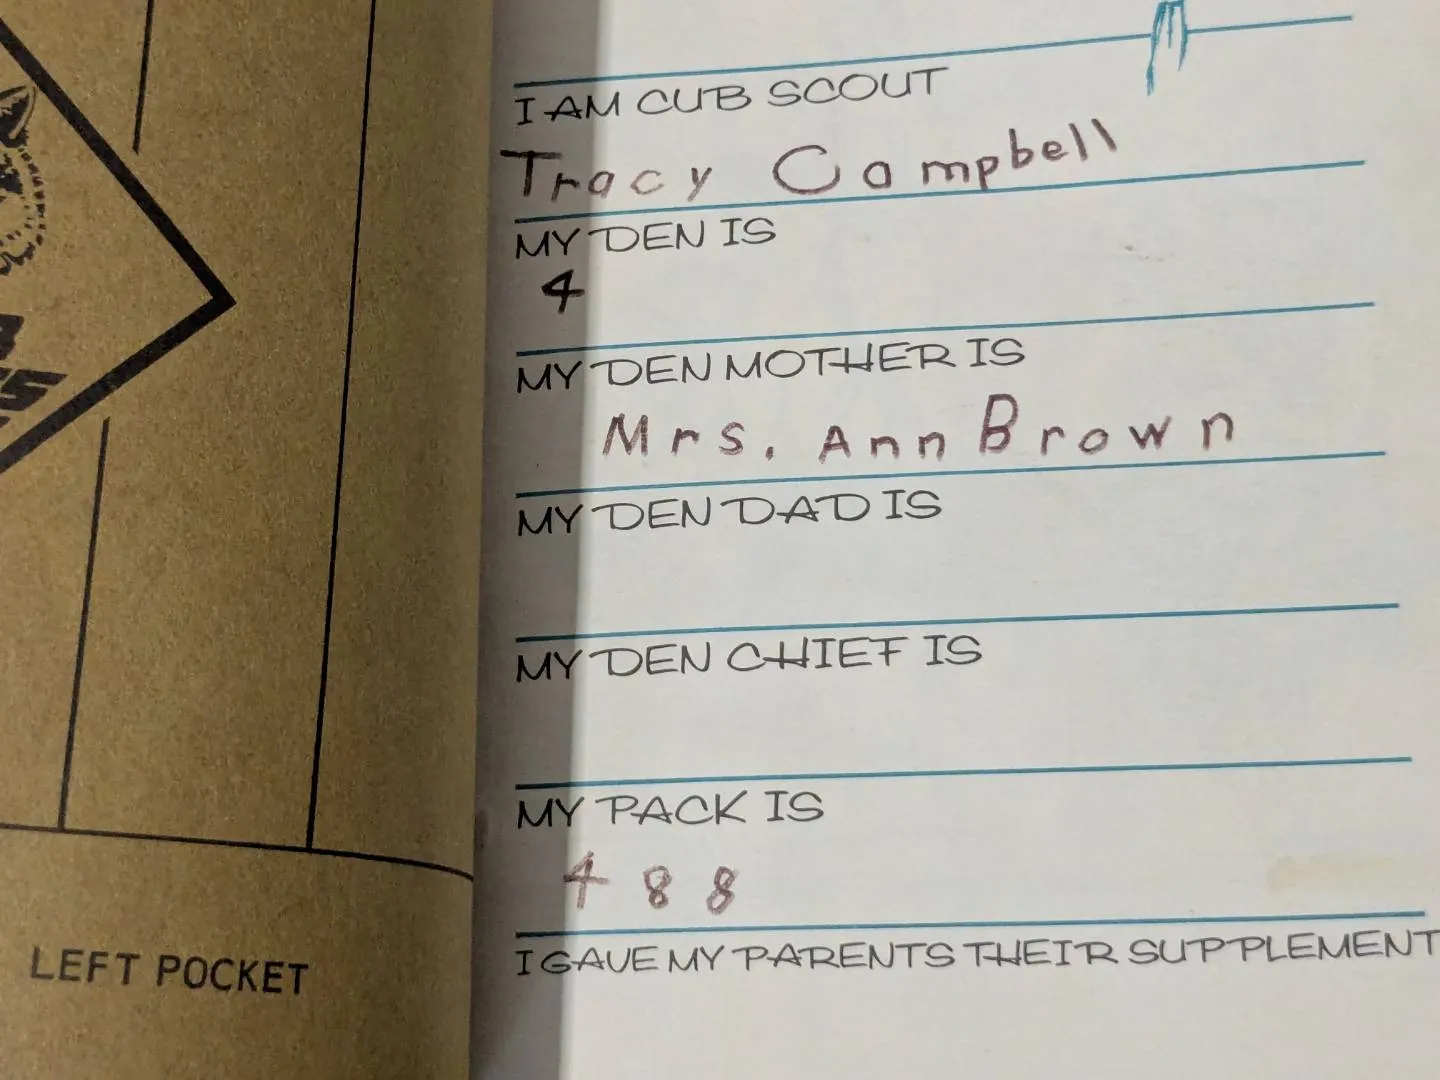 I AM CUB SCOUT
Tracy Campbell
MY DEN IS
4
MY DEN MOTHER IS
Mrs. Ann Brown
MY DEN DAD IS
MY DEN CHIEF IS
MY PACK IS
488
I GAVE MY PARENTS THEIR SUPPLEMENT
LEFT POCKET